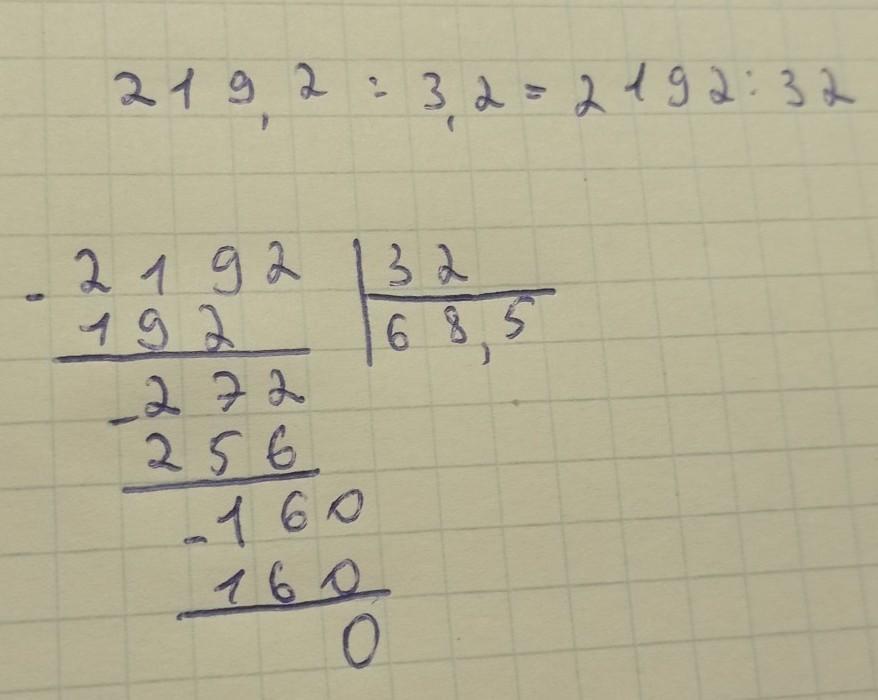 219,2 : 3,2 = 2192 : 32
- 2192 | 32
192 | 68,5
- 272
256
- 160
160
0